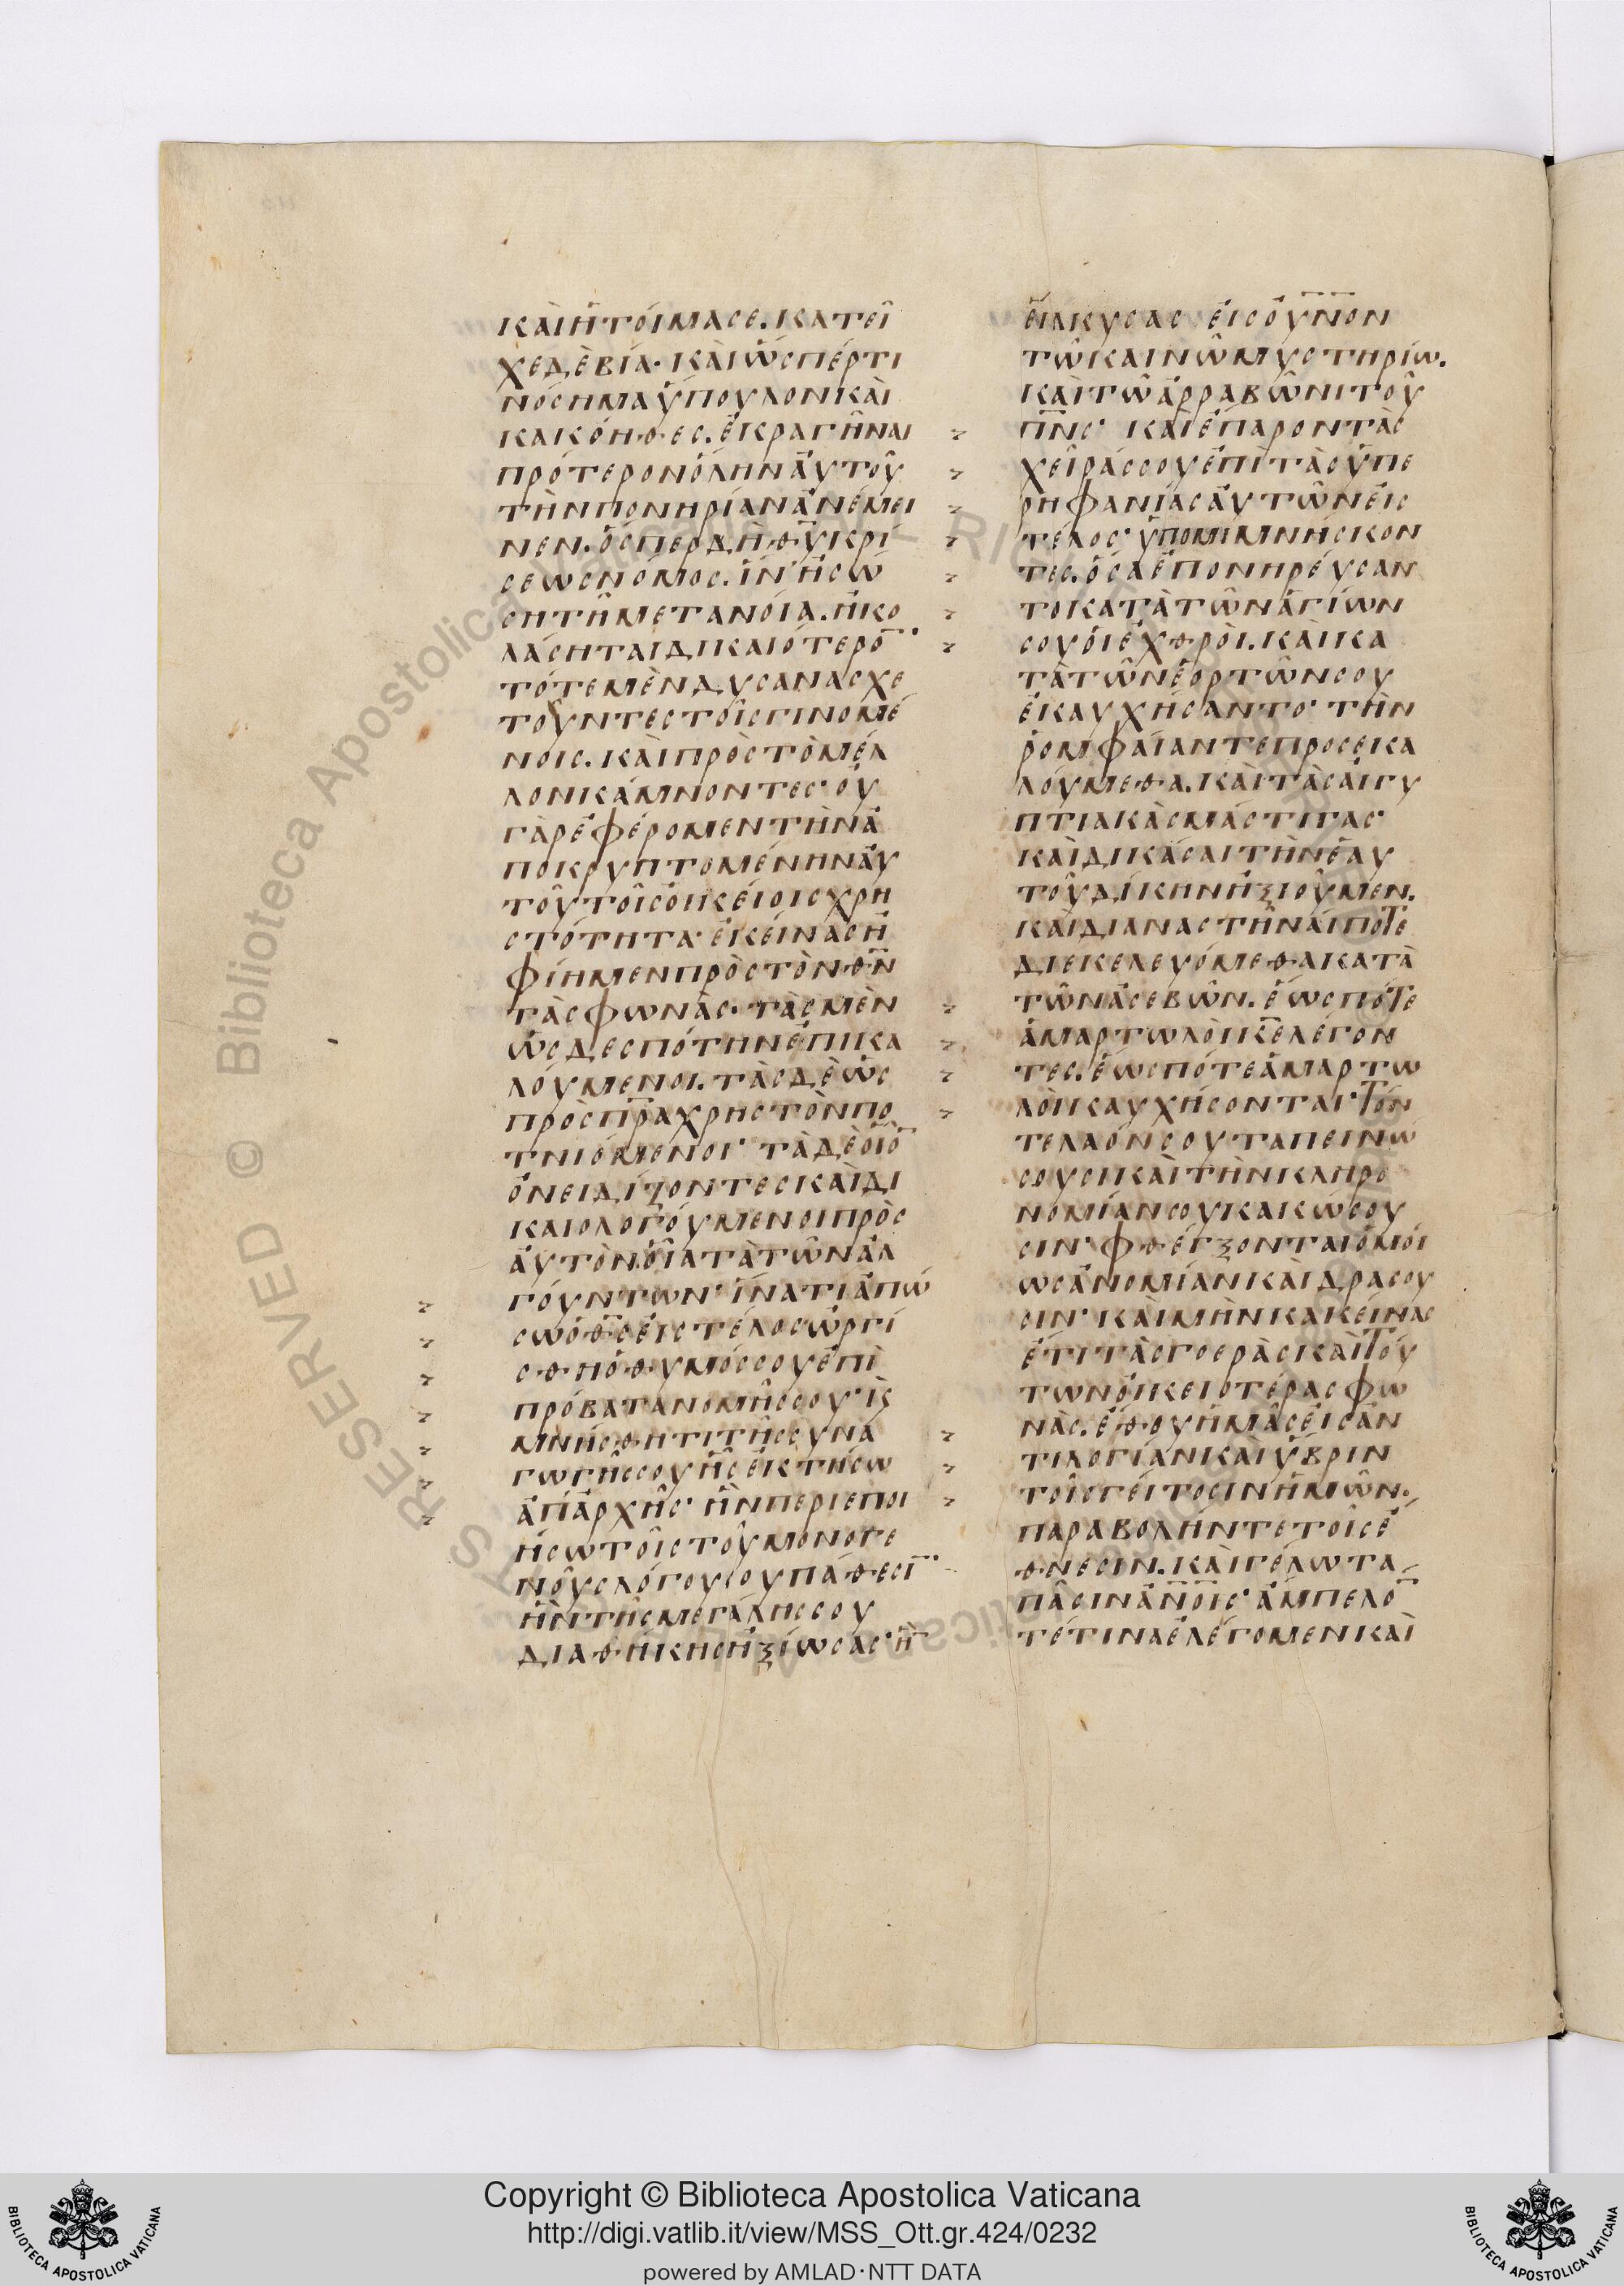 κὰι ἡτοίμασε. κατεῖ
χε δὲ βία· κὰι ὥσπέρ τι
νόσημα ὕπουλον κὰι
κακόηθες. ἐκραγῆναι
πρότερον ὅλην ἀυτοῦ
τὴν πονηρίαν ἀνέμει
νεν. ὅσπερ δὴ θ̅υ̅ κρί
σεως νόμος. ἵν' ἢ σώ
ση τῆ μετανόια. ἢ κο
λάσηται δικαιότερο̅·
τότε μὲν δυσανασχε
τοῦντες τοῖς γινομέ
νοις. κὰι πρὸς τὸ μέλ
λον κάμνοντες· ὀυ
γὰρ ἐφέρομεν τὴν ἀ
ποκρυπτομένην ἀυ
τοῦ τοῖς ὀικείοις χρη
στότητα· ἐκείνας ἠ
φίημεν πρὸς τὸν θ̅ν̅
τὰς φωνὰς· τὰς μὲν
ὡς δεσπότην ἐπικα
λούμενοι. τὰς δὲ ὡς
πρὸς π̅ρ̅α χρηστὸν πο
τνιόμενοι· τὰ δὲ ὁῖο̅
ὀνειδίζοντες κὰι δι
καιολογούμενοι πρὸς
ἀυτὸν. ὁῖα τὰ τῶν ἀλ
γούντων· ἵνα τί ἀπώ
σω ὁ θ̅ς̅ ἐις τέλος ὠργί
σθη ὁ θυμός σου ἐπὶ
πρόβατα νομῆς σου· ϗ
μνήσθητι τῆς συνα
γωγῆς σου ἧς ἐκτήσω
ἀπ' ἀρχῆς· ἣν περιεποι
ήσω τοῖς τοῦ μονογε
νοῦς λόγου σου πάθεσι̅·
ἣν τῆς μεγάλης σου
διαθήκης ἠξίωσας· ἣ̅
ἐίλκυσας ἐις ὀυ̅ν̅ον
τῶ καινῶ μυστηρίω.
κὰι τῶ ἀρραβῶνι τοῦ
π̅ν̅ς· κὰι ἔπαρον τὰς
χεῖράς σου ἐπὶ τὰς ὑπε
ρηφανίας ἀυτῶν ἐις
τέλος· ὑπομιμνήσκον
τες. ὅσα ἐπονηρέυσαν
το κατὰ τῶν ἁγίων
σου ὁι ἐχθρὸι. κὰι κα
τὰ τῶν ἑορτῶν σου
ἐκαυχήσαντο· τὴν
ῥομφαίαν τε προσεκα
λούμεθα. κὰι τὰς ἀιγυ
πτιακὰς μάστιγας·
κὰι δικάσαι τὴν ἑαυ
τοῦ δίκην ἠξιοῦμεν.
κὰι διαναστῆναί ποτε
διεκελευόμεθα κατὰ
τῶν ἀσεβῶν. ἕως πότε
ἁμαρτωλὸι κ̅ε̅ λέγον
τες. ἕως πότε ἁμαρτω
λὸι καυχήσονται· τόν
τε λαόν σου ταπεινώ
σουσι κὰι τὴν κληρο
νομίαν σου κακώσου
σιν· φθέγξονται ὁμοί
ως ἀνομίαν κὰι δράσου
σιν· κὰι μὴν κακείνας
ἔτι τὰς γοερὰς κὰι τού
των ὀικειοτέρας φω
νὰς. ἔθου ἡμᾶς ἐις ἀν
τιλογίαν κὰι ὕβριν
τοῖς γείτοσιν ἡμῶν.
παραβολήν τε τοῖς ἔ
θνεσιν. κὰι γέλωτα
πᾶσιν ἀ̅ν̅ο̅ι̅ς· ἄμπελο̅
τέ τινα ἐλέγομεν κὰι
Copyright © Biblioteca Apostolica Vaticana
http://digi.vatlib.it/view/MSS_Ott.gr.424/0232
powered by AMLAD·NTT DATA